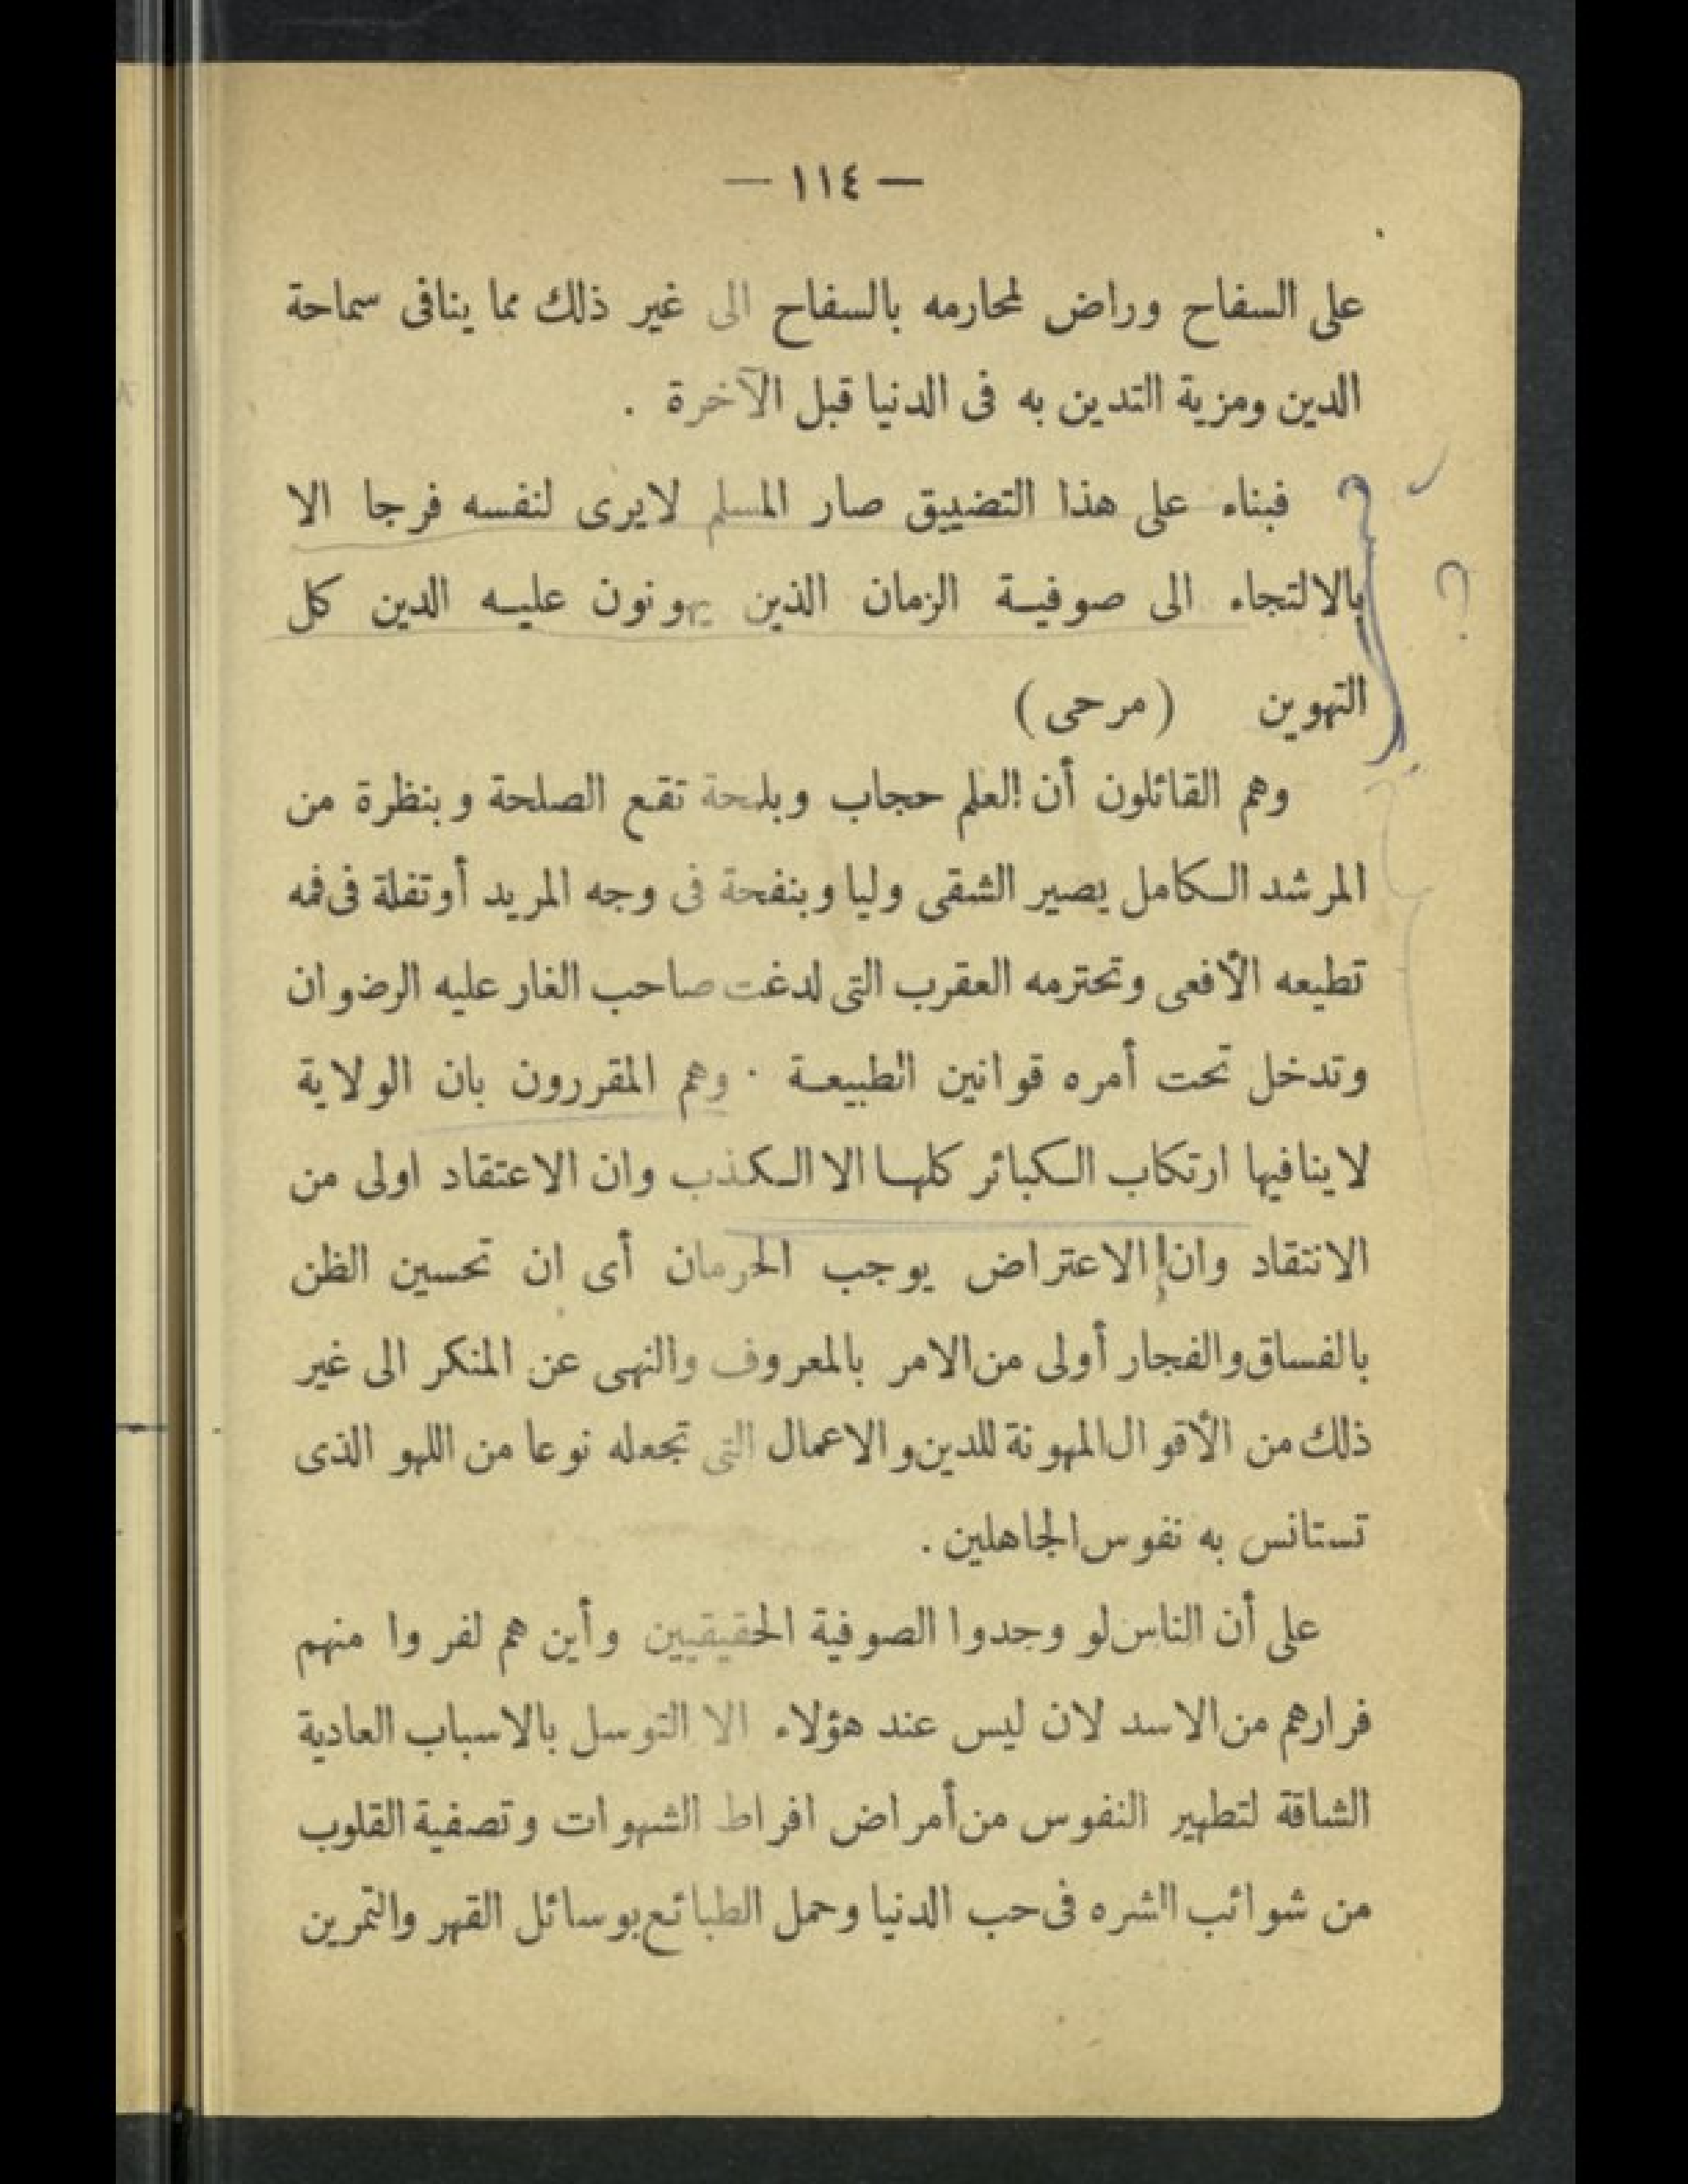 — ١١٤ —
على السفاح وراض لمحارمه بالسفاح الى غير ذلك مما ينافى سماحة
الدين ومزية التدين به فى الدنيا قبل الآخرة .
فبناء على هذا التضييق صار المسلم لايرى لنفسه فرجا الا
بالالتجاء الى صوفية الزمان الذين يهونون عليه الدين كل
التهوين (مرحى)
وهم القائلون أن العلم حجاب وبلمحة تقع الصلحة وبنظرة من
المرشد الكامل يصير الشقى وليا وبنفحة فى وجه المريد أوتفلة فى فمه
تطيعه الأفعى وتحترمه العقرب التى لدغت صاحب الغار عليه الرضوان
وتدخل تحت أمره قوانين الطبيعة . وهم المقررون بان الولاية
لاينافيها ارتكاب الكبائر كلها الا الكذب وان الاعتقاد اولى من
الانتقاد وان الاعتراض يوجب الحرمان أى ان تحسين الظن
بالفساق والفجار أولى من الامر بالمعروف والنهى عن المنكر الى غير
ذلك من الأقوال المهونة للدين والاعمال التى تجعله نوعا من اللهو الذى
تستانس به نفوس الجاهلين .
على أن الناس لو وجدوا الصوفية الحقيقيين وأين هم لفروا منهم
فرارهم من الاسد لان ليس عند هؤلاء الا التوسل بالاسباب العادية
الشاقة لتطهير النفوس من أمراض افراط الشهوات وتصفية القلوب
من شوائب الشره فى حب الدنيا وحمل الطبائع بوسائل القهر والتمرين